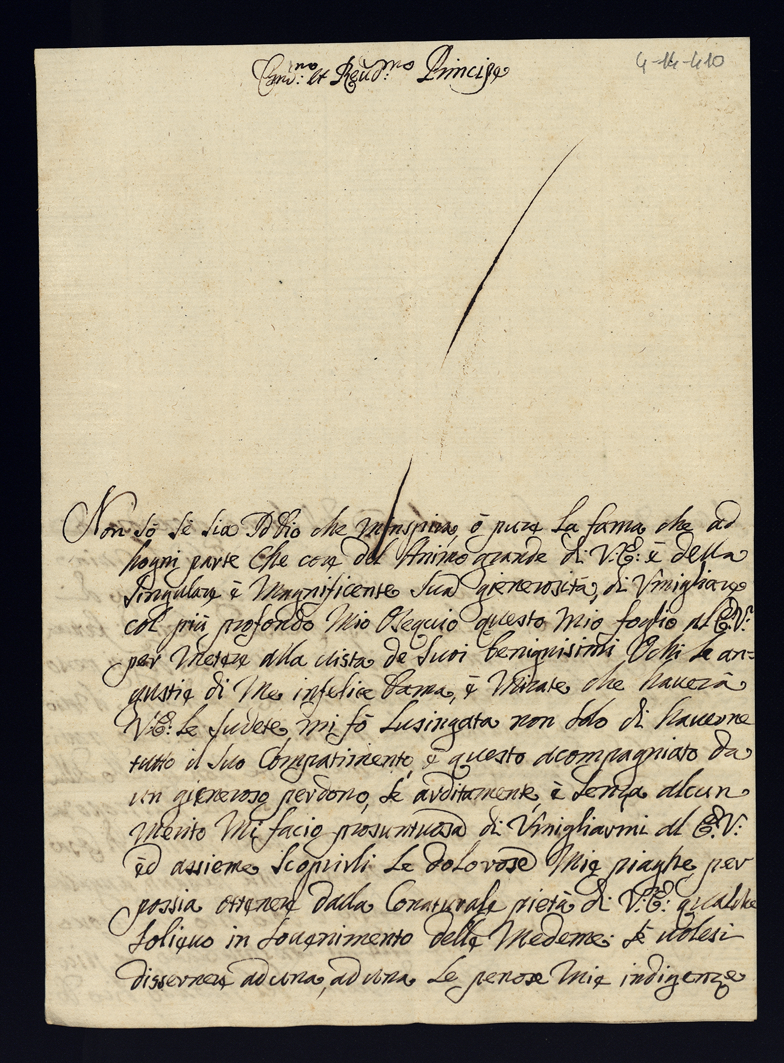 4-14-410
Emi:mo et Reud:mo Principe
Non sò sè sia Iddio che m'inspira, ò pure la fama che ad
hogni parte che core del Animo grande di V:E: è della
singulare è Magnificente sua gienerosità, di Vmigliare
col più profondo Mio Osequio questo mio foglio al E:V:
per Metere alla uista de suoi benignissimi Ochi le an=
gustie di Me infelice Dama, è Mirate che hauerà
V:E: le sudete, mi fò lusingata non solo di hauerne
tutto il suo Compatimento, è questo acompagniato da
un gieneroso perdono, sè arditamente, è senza alcun
Merito Mi facio prosuntuosa di Vmigliarmi al E:V:
èd assieme scoprirli le dolorose Mie piaghe per
possia otenere dalla Conaturale pietà di V:E: qualche
solieuo in souenimento delle Medeme; sè uolesi
disservere ad una, ad una le penose Mie indigenze